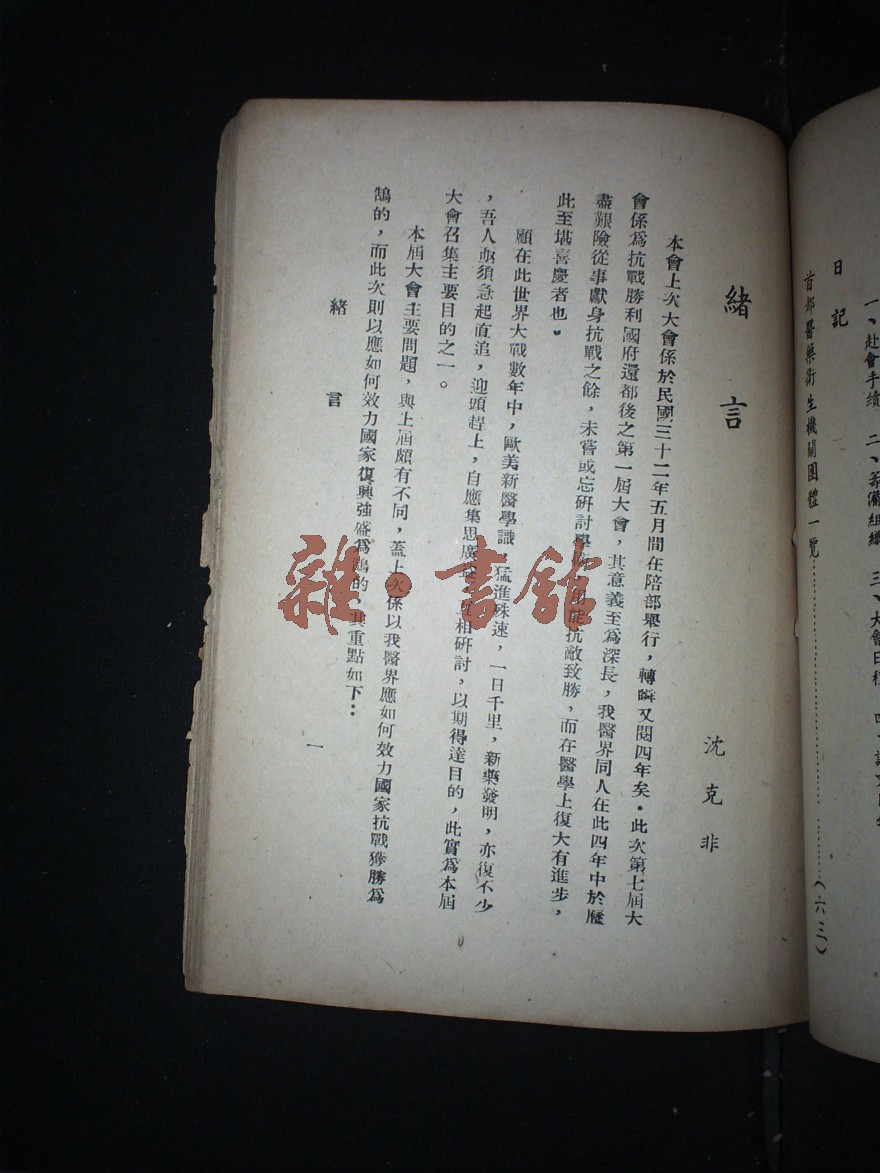 日記
一、赴會手續 二、籌備組織 三、大會日程 四、
首都醫藥衛生機關團體一覽……………………(六三)
緒言
沈克非
本會上次大會係於民國三十二年五月間在陪部舉行，轉瞬又閱四年矣。此次第七屆大
會係爲抗戰勝利國府還都後之第一屆大會，其意義至爲深長，我醫界同人在此四年中於歷
盡艱險從事獻身抗戰之餘，未嘗或忘研討學術，抗敵致勝，而在醫學上復大有進步，
此至堪喜慶者也。
顧在此世界大戰數年中，歐美新醫學識，猛進殊速，一日千里，新藥發明，亦復不少
，吾人亟須急起直追，迎頭趕上，自應集思廣益，相研討，以期得達目的，此實爲本屆
大會召集主要目的之一。
本屆大會主要問題，與上屆頗有不同，蓋上次係以我醫界應如何效力國家抗戰獲勝爲
鵠的，而此次則以應如何效力國家復興強盛爲鵠的，其重點如下：
緒言
一
雜·書館